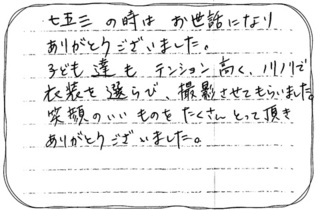 七五三の時は お世話になり
ありがとうございました。
子ども達も テンション高く、ノリノリで
衣装を選らび、撮影させてもらいました。
笑顔のいいものをたくさんとって頂き
ありがとうございました。